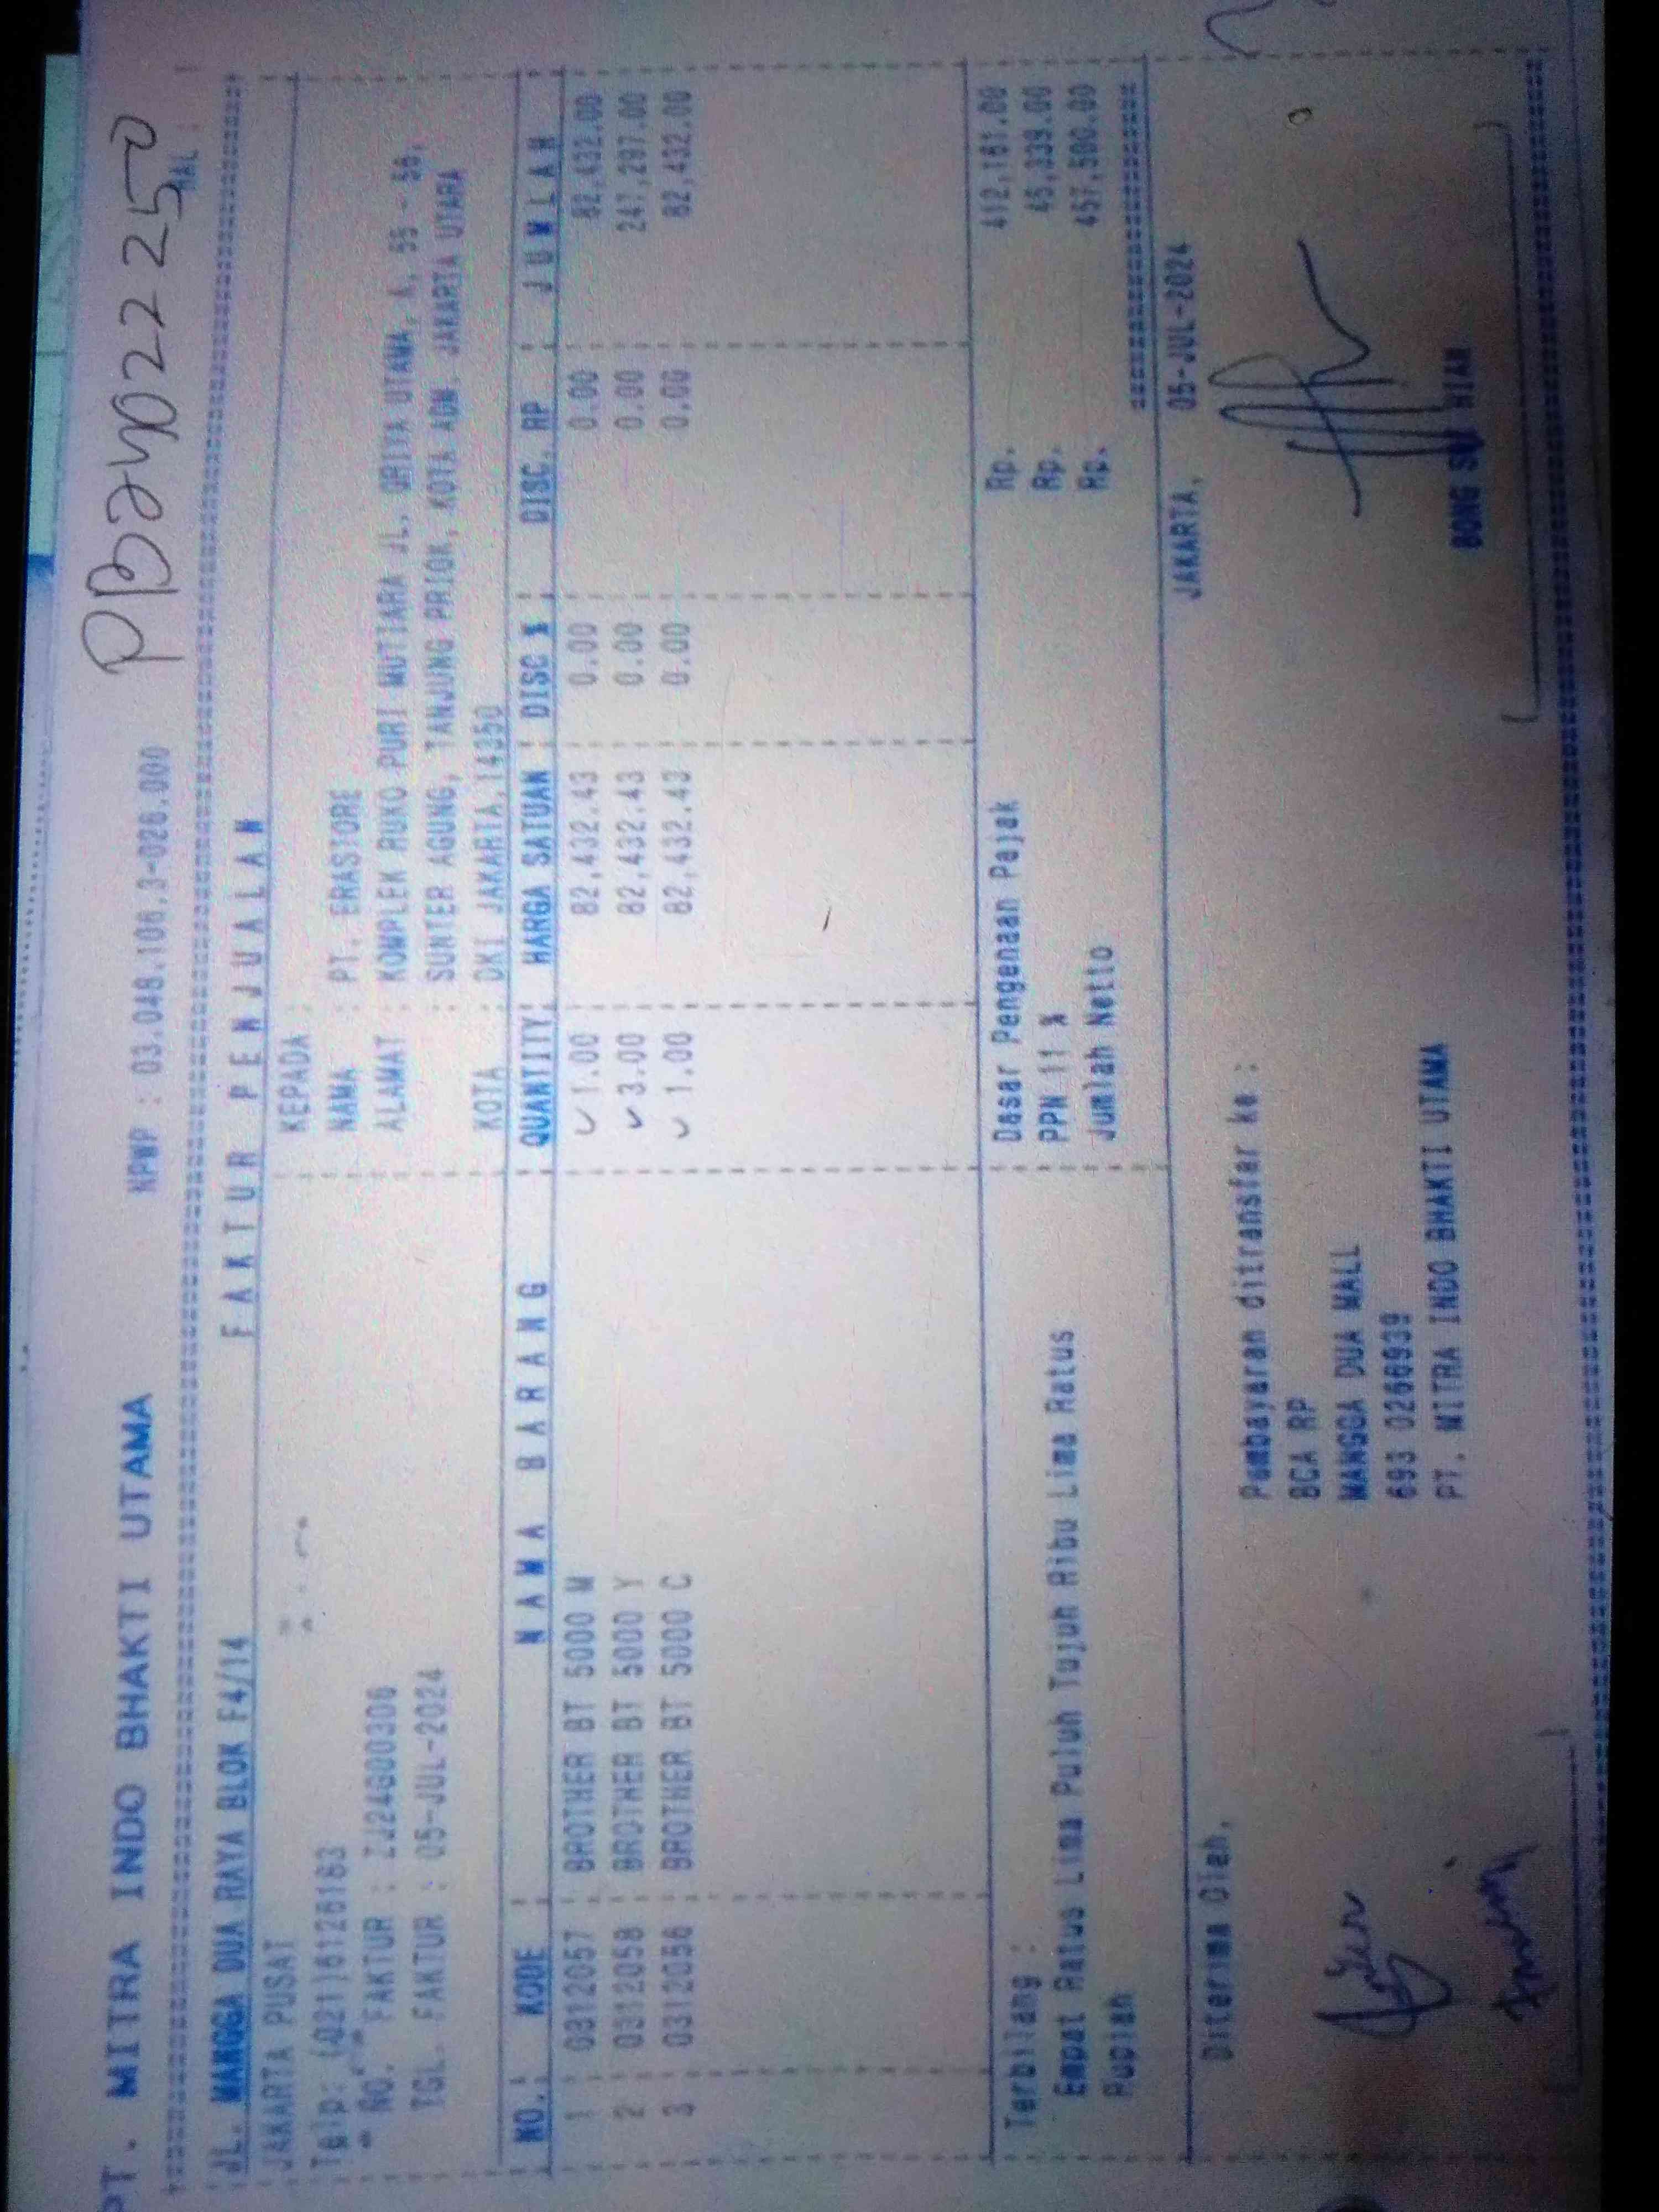 PT. MITRA INDO BHAKTI UTAMA NPWP : 03.048.106.3-026.000
HAL :
JL. MANGGA DUA RAYA BLOK F4/14 FAKTUR PENJUALAN
JAKARTA PUSAT KEPADA :
Telp: (021)6126163 NAMA : PT. ERASTORE
NO. FAKTUR : ALAMAT : KOMPLEK RUKO PURI MUTIARA JL. GRIYA UTAMA, A,
TGL. FAKTUR : 05-JUL-2024 : SUNTER AGUNG, TANJUNG PRIOK, KOTA ADM. JAKARTA UTARA
KOTA : DKI JAKARTA,14350
NO. KODE NAMA BARANG QUANTITY HARGA SATUAN DISC % DISC. RP JUMLAH
1 0312057 BROTHER BT 5000 M 1.00 82,432.43 0.00 0.00 82,432.00
2 0312058 BROTHER BT 5000 Y 3.00 82,432.43 0.00 0.00 247,297.00
3 0312056 BROTHER BT 5000 C 1.00 82,432.43 0.00 0.00 82,432.00
Terbilang : Dasar Pengenaan Pajak Rp. 412,161.00
Empat Ratus Lima Puluh Tujuh Ribu Lima Ratus PPN 11 % Rp. 45,339.00
Rupiah Jumlah Netto Rp. 457,500.00
JAKARTA, 05-JUL-2024
Diterima Oleh,
Pembayaran ditransfer ke :
BCA RP
MANGGA DUA MALL
693 0266939
PT. MITRA INDO BHAKTI UTAMA
BONG